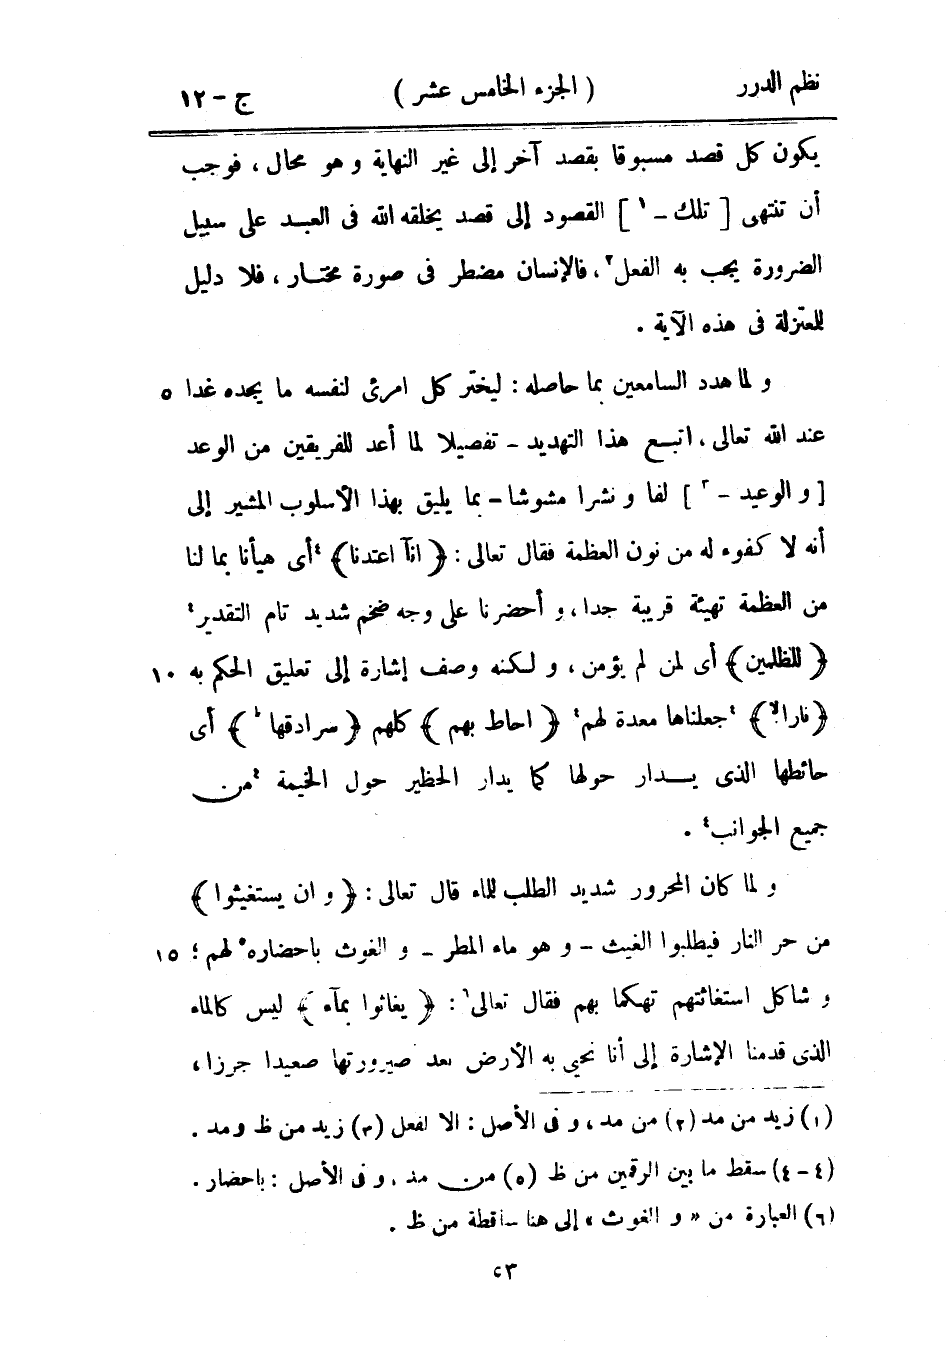 نظم الدرر ( الجزء الخامس عشر ) ج – ١٢
يكون كل قصد مسبوقا بقصد آخر إلى غير النهاية و هو محال ، فوجب
أن تنتهى [ تلك – ١ ] القصود إلى قصد يخلقه الله فى العبد على سبيل
الضرورة يجب به الفعل٢ ، فالإنسان مضطر فى صورة مختار ، فلا دليل
للعتزلة فى هذه الآية .
و لما هدد السامعين بما حاصله : ليختر كل امرئ لنفسه ما يجده غدا ٥
عند الله تعالى ، اتبع هذا التهديد – تفصيلا لما أعد للفريقين من الوعد
[ و الوعيد – ٣ ] لفا و نشرا مشوشا – بما يليق بهذا الأسلوب المشير إلى
أنه لا كفوء له من نون العظمة فقال تعالى : ﴿ انآ اعتدنا ﴾ ٤أى هيأنا بما لنا
من العظمة تهيئة قريبة جدا ، و أحضرنا على وجه ضخم شديد تام التقدير٤
﴿ للظلمين ﴾ أى لمن لم يؤمن ، و لكنه وصف إشارة إلى تعليق الحكم به ١٠
﴿ ناراﻻ ﴾ ٤جعلناها معدة لهم٤ ﴿ احاط بهم ﴾ كلهم ﴿ سرادقها ط ﴾ أى
حائطها الذى يدار حولها كما يدار الحظير حول الخيمة ٤من
جميع الجوانب٤ .
و لما كان المحرور شديد الطلب للماء قال تعالى : ﴿ و ان يستغيثوا ﴾
من حر النار فيطلبوا الغيث – و هو ماء المطر – و الغوث باحضاره٥ لهم ؛ ١٥
و شاكل استغاثتهم تهكما بهم فقال تعالى٦ : ﴿ يغاثوا بمآء ﴾ ليس كالماء
الذى قدمنا الإشارة إلى أنا نحيي به الأرض بعد صيرورتها صعيدا جرزا ،
(١) زيد من مد (٢) من مد ، و فى الأصل : الا لفعل (٣) زيد من ظ و مد .
(٤ – ٤) سقط ما بين الرقمين من ظ (٥) من مد ، و فى الأصل : باحضار .
(٦) العبارة من « و الغوث » إلى هنا ساقطة من ظ .
٥٣